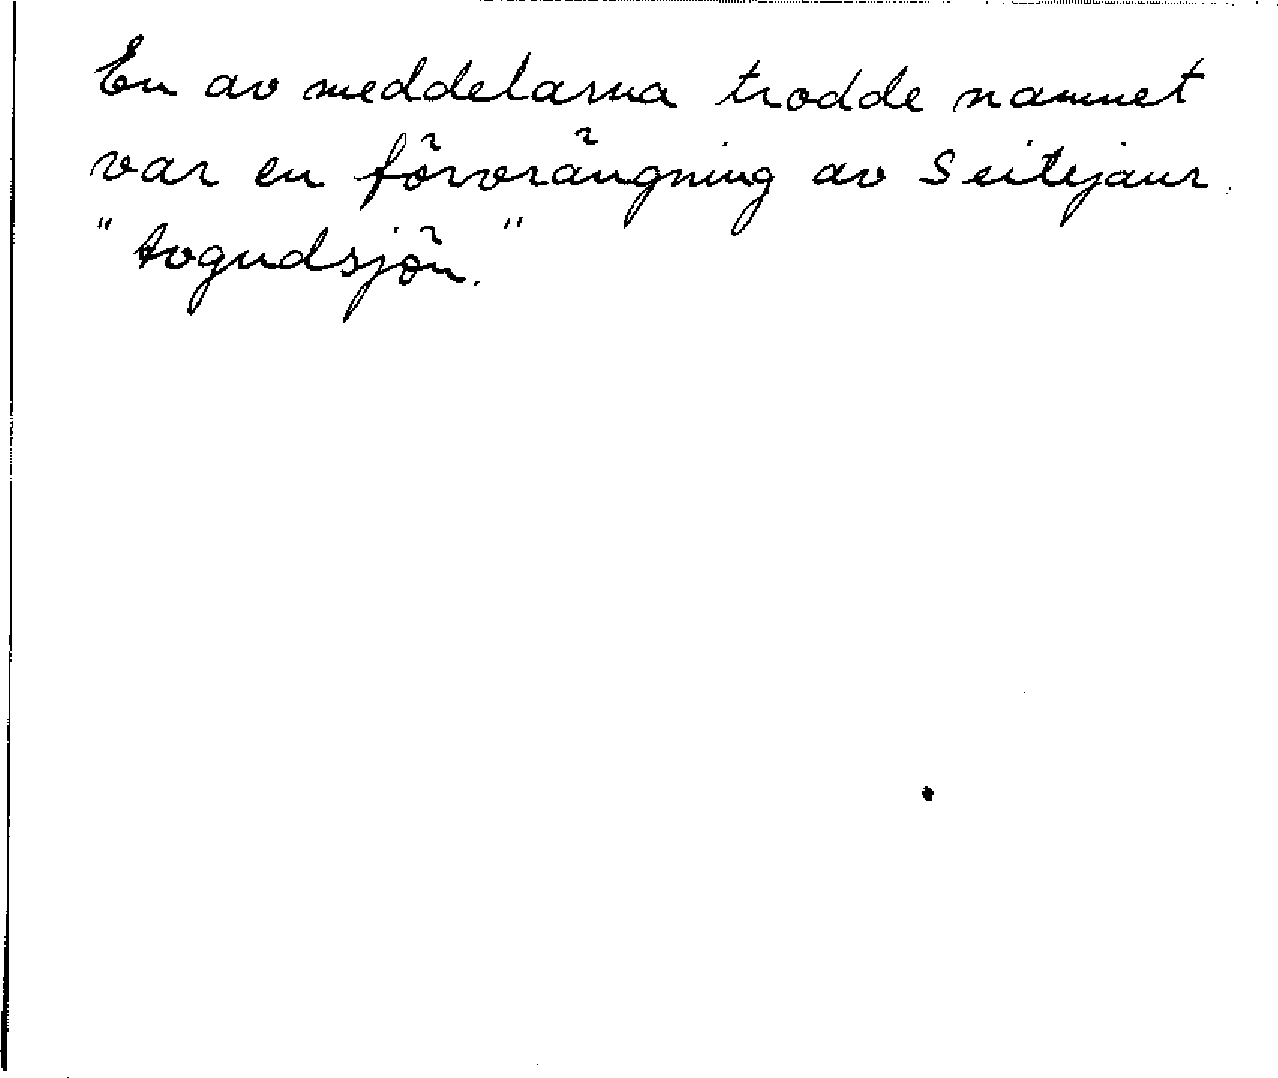 En av meddelarna trodde namnet
var en förvrängning av Seitejaur.
"Avgudsjön."